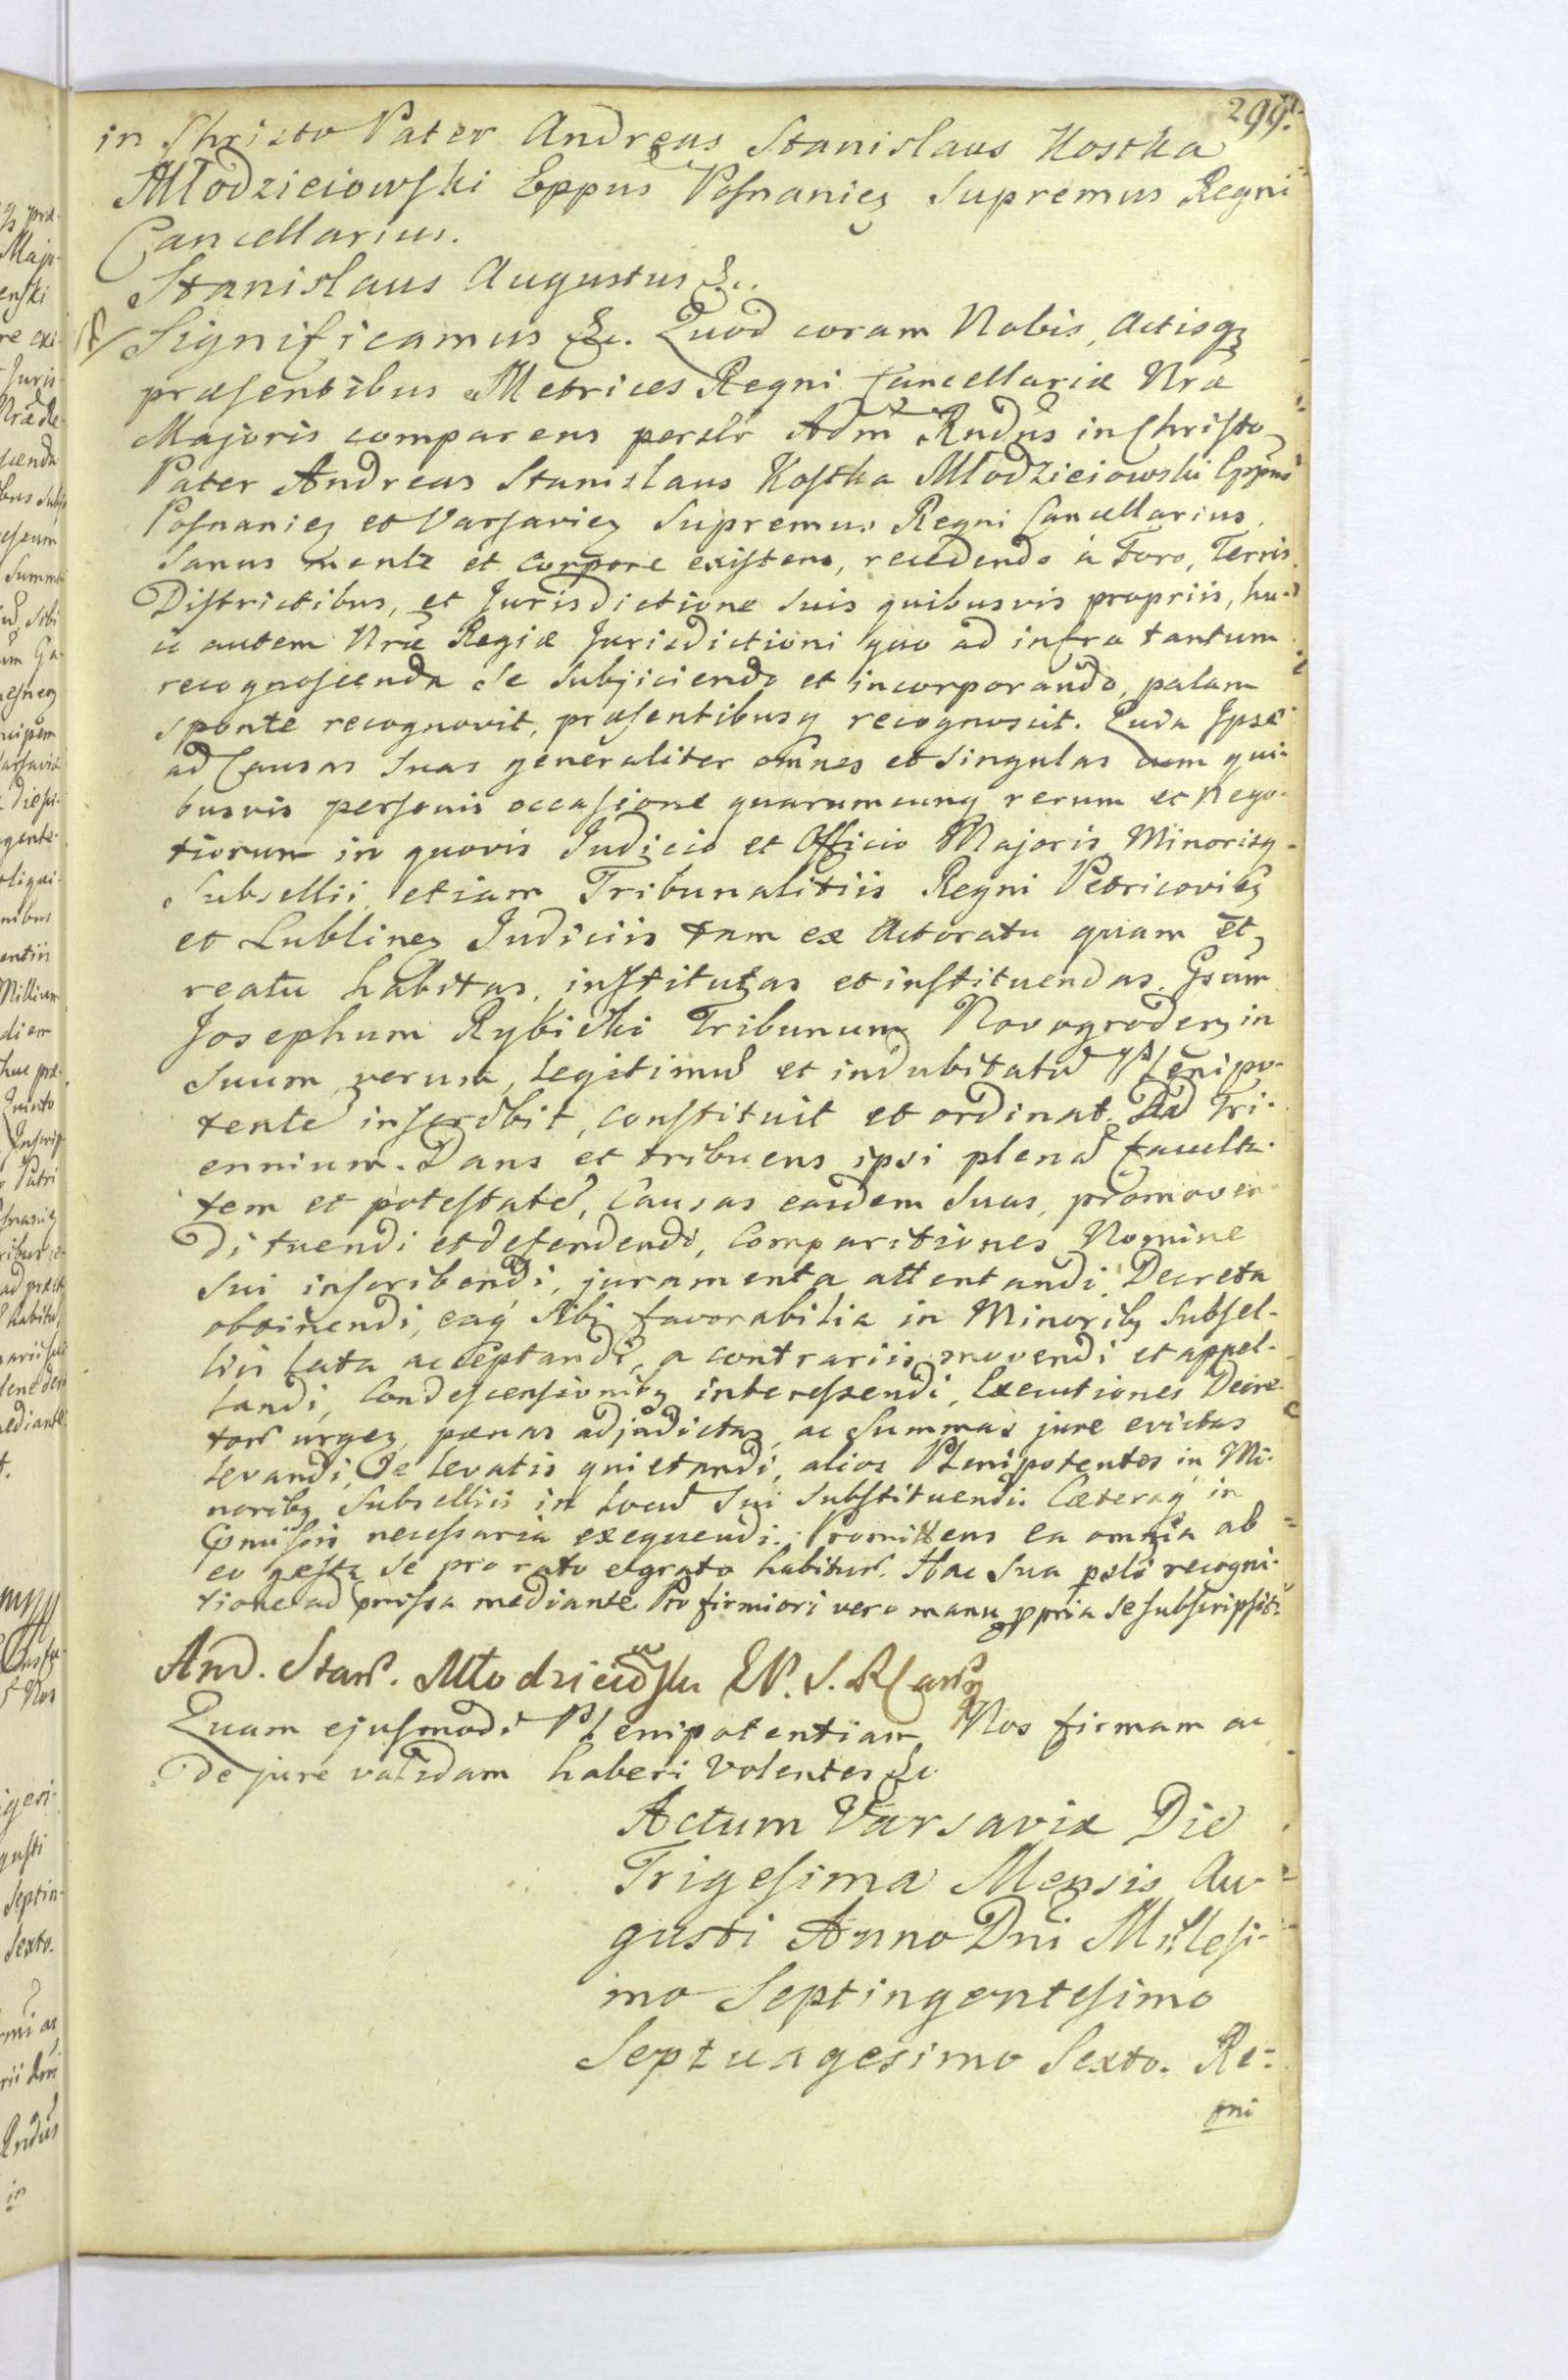 299.
in Christo Pater Andreas Stanislaus Kostka
Młodzieiowski Eppus Posnanień Supremus Regni
Cancellarius.
Stanislaus Augustus &c.
Significamus &c. Quod coram Nobis, Actisq;
præsentibus Metrices Regni Cancellariæ Nræ
Majoris comparens persłr Adm Rndus in Christo
Pater Andreas Stanislaus Kostka Młodzieiowski Eppus
Posnanień et Varsavień Supremus Regni Cancellarius
Sanus mente et corpore existens, recedendo à Foro, Terris
Districtibus, et Jurisdictione suis quibusvis propriis, hu-
ic autem Nræ Regiæ Jurisdictioni quo ad infra tantum
recognoscenda se subjiciendo et incorporando, palam
sponte recognovit, præsentibusq recognoscit. Quia Ipse
ad Causas suas generaliter omnes et singulas cum qui-
busvis personis occasione quarumcunq rerum et nego-
tiorum in quovis Judicio et Officio Majoris Minorisq
Subsellii etiam Tribunalitiis Regni Petricovień
et Lublineń Judiciis tam ex Actoratu quam et
reatu habitas, institutas et instituendas. Gsum
Josephum Rybicki Tribunum Novogrodeń in
Suum verum, legitimũ et indubitatũ Plenipo-
tentẽ inscribit, constituit et ordinat. Ad Tri-
ennium. Dans et tribuens ipsi plenã faculta-
tem et potestatẽ, Causas easdem suas, promoven-
di tuendi et defendendi, Comparitiones Nomine
sui inscribendi, juramenta attentandi, Decreta
obtinendi, eaq sibi favorabilia in Minorib; Subsel-
liis lata acceptandi, a contrariis movendi et appel-
landi, Condescensionib; interessendi, Executiones Decre-
torũ urgeń, pænas adjudictas, ac Summas jure evictas
levandi, De levatis quietandi, alios Plenipotentes in Mi-
norib; Subselliis in locũ sui substituendi. Cæteraq in
Pmissis necessaria exequendi. Promittens ea omnia ab
eo gesta se pro rato et grato habiturũ. Hac sua psłi recogni-
tione ad pmissa mediante Pro firmiori vero manu ppria se subscripsit.
And. Stanł. Młodzieiowski EP. S. R Canỹ
Quam ejusmodi Plenipotentiam Nos firmam ac
de jure validam haberi volentes &c
Actum Varsaviæ Die
Trigesima Mensis Au-
gusti Anno Dni Millesi-
mo Septingentesimo
Septuagesimo Sexto. Re-
gni